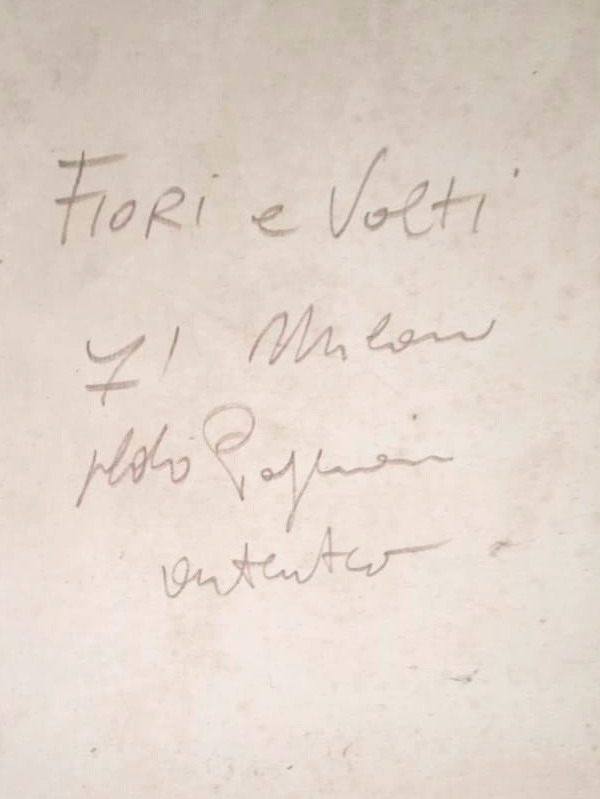 Fiori e Volti
71 Milano
Aldo Pagliacci
autentico